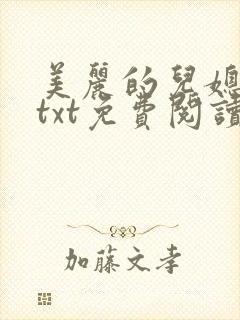 美麗的兒媳
txt免費閱讀
加藤文孝